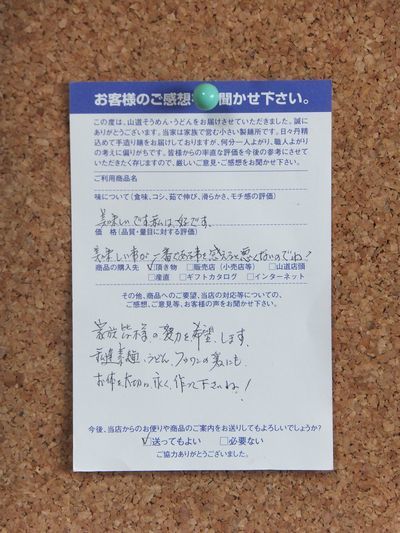 お客様のご感想 聞かせ下さい。
この度は、山道そうめん・うどんをお届けさせていただきました。誠に
ありがとうございます。当家は家族で営む小さい製麺所です。日々丹精
込めて手造り麺をお届けしておりますが、何分一人よがり、職人よがり
の考えに偏りがちです。皆様からの率直な評価を今後の参考にさせて
いただきたく存じますので、厳しいご意見・ご感想をお聞かせ下さい。
ご利用商品名
味について(食味、コシ、茹で伸び、滑らかさ、モチ感の評価)
美味しいです私は好です、
価 格(品質・量目に対する評価)
美味しい事が一番である事を感えると悪くないのでわ!
商品の購入先 ☑頂き物 □販売店(小売店等) □山道店頭
□産直 □ギフトカタログ □インターネット
その他、商品へのご要望、当店の対応等についての、
ご感想、ご意見等、お客様の声をお聞かせ下さい。
家族皆様の努力を希望します。
素麺、うどん、ファンの為にも
お体を大切に永く作って下さいね!
今後、当店からのお便りや商品のご案内をお送りしてもよろしいでしょうか?
☑送ってもよい □必要ない
ご協力ありがとうございました。